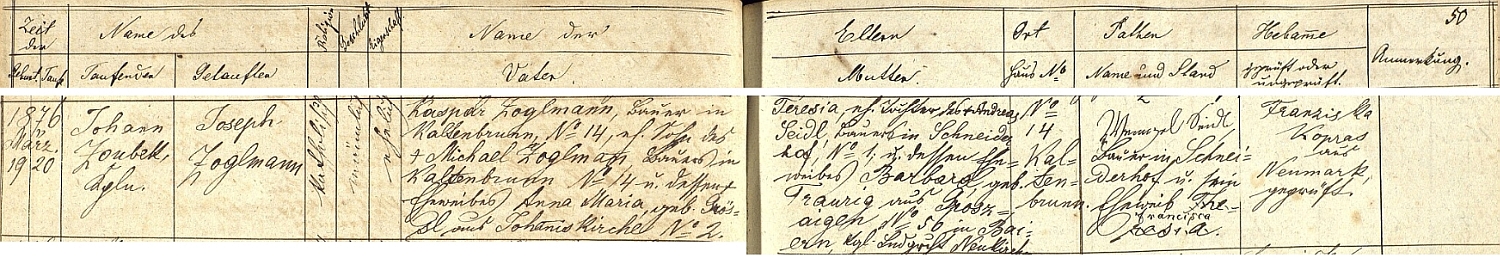 50
Zeit der
Name des
Religion
Geschlecht
Name der
Eltern
Ort
Pathen
Hebamme
Geburt. Taufe
Taufenden
Getauften
Vater.
Mutter.
Haus No
Name und Stand
geprüft oder ungeprüft.
Anmerkung.
1876
März.
19 20
Johann
Zoubek,
Kpln.
Joseph
Zoglmann
katholisch
männlich
ehelich
Kaspar Zoglmann, Bauer in
Kaltenbrunn, No 14, eh. Sohn des
† Michael Zoglmann, Bauers in
Kaltenbrunn No 14 u. dessen
Eheweibes Anna Maria, geb. Grös-
sl aus Johanniskirche No 2.
Teresia, eh. Tochter des † Andreas
Seidl, Bauers in Schneider
hof, No 1, u. dessen Ehe-
weibes Barbara, geb.
Traurig aus Grosz-
aigen No 56 in Bai-
ern, kgl. Landgrcht Neukirchen
No
14
Kal-
ten-
brunn.
Wenzel Seidl
Bauer in Schnei-
derhof u. sein
Eheweib The-
Francisca
resia.
Franziska
Kopras
aus
Neumark,
geprüft